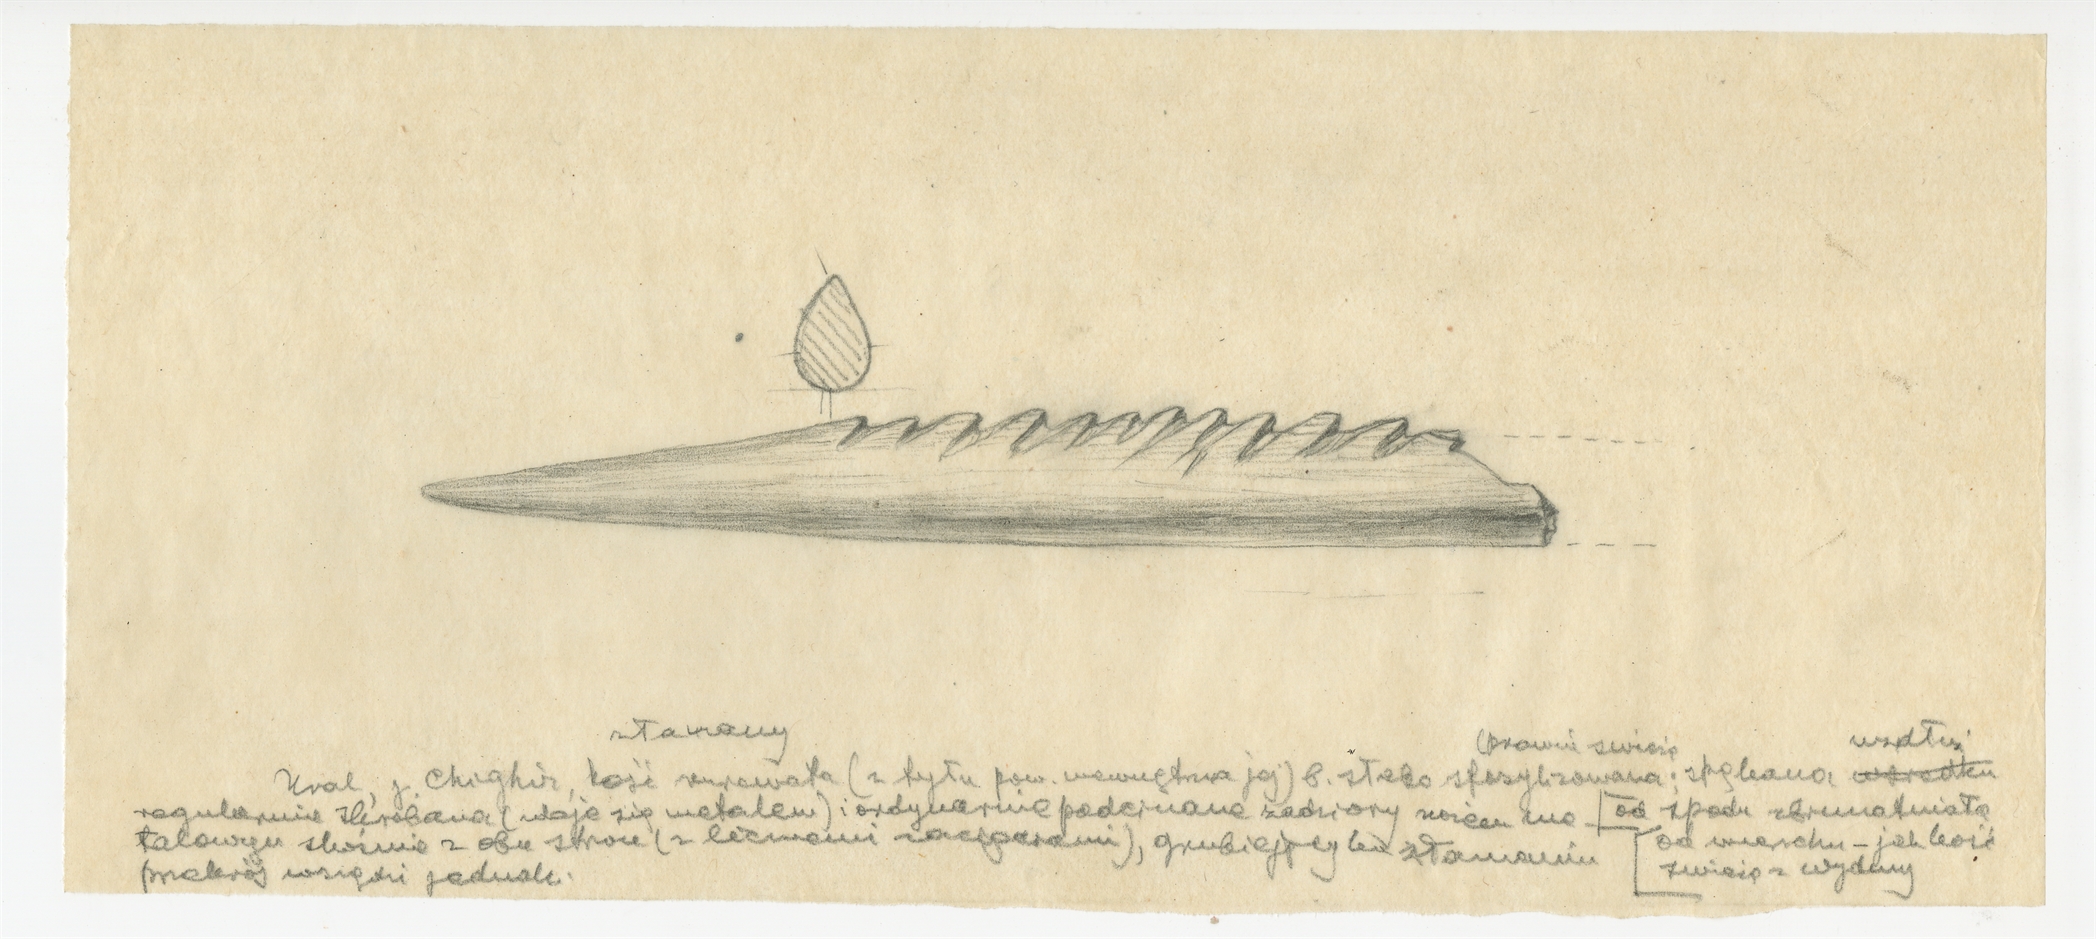 złamany
(prawie świeżo wzdłuż
Ural, j. Chighir, kość surowata (z tyłu pow. wewnętrzna jej) b. słabo sfosylizowana; spękana
regularnie skrobana (zdaje się metalem) i ordynarnie podcinane zadziory nożem me od spodu zbrunatniała
talowym skośnie z obu stron (z licznemi zacięciami), grubiej przy złamaniu od wierzchu – jak kość
przekrój wszędzie jednak. świeżo z wydmy